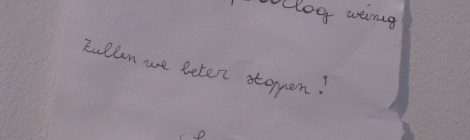 weinig
Zullen we beter stoppen!